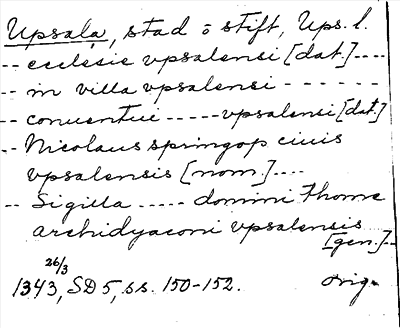 Upsala, stad o stift, Ups. l.
-- ecclesie vpsalensi [dat.]----
-- in villa vpsalensi - - - - - - -
-- conuentui ----- vpsalensi [dat.]
-- Nicolaus springop ciuis
vpsalensis [nom.]----
-- Sigilla ----- domini thome
archidyaconi vpsalensis
[gen.]--
26/3
1343, SD 5, ss. 150-152. orig.